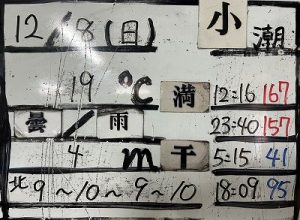 12/8(日) 小潮
19℃ 満 12:16 167
曇/雨 23:40 157
4m 干 5:15 41
北9~10~9~10 18:09 95